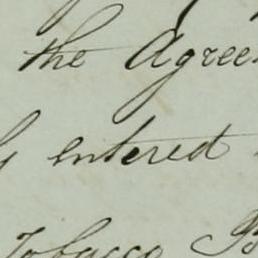 the Agree
y entered
Tobacco B